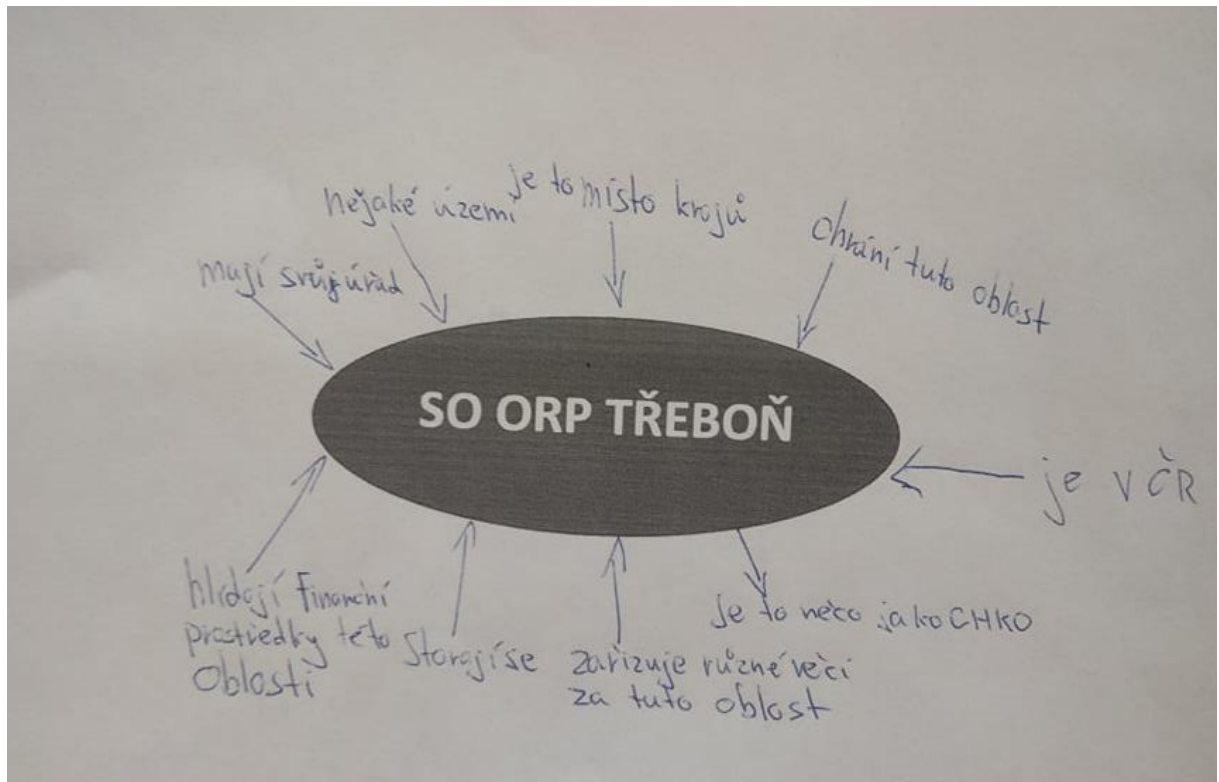 nějaké území
je to místo krajů
chrání tuto oblost
mají svůj úřad
SO ORP TŘEBOŇ
je v ČR
hlídají finanční
prostředky této
oblasti
Starají se
zařizuje různé věci
za tuto oblast
je to něco jako CHKO